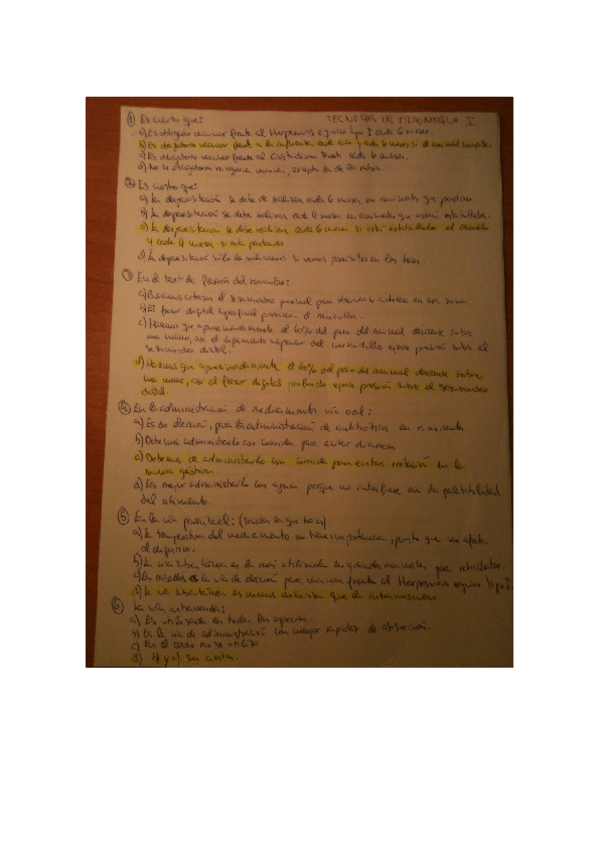 ① Es cierto que: TECNICAS DE DIAGNOSTICO I
a) Es obligado vacunar frente al Herpesvirus equino tipo I cada 6 meses.
b) Es obligatorio vacunar frente a la influenza cada año y cada 6 meses si el animal compite.
c) Es obligatorio vacunar frente al Clostridium tetani cada 6 meses.
d) No es obligatoria ninguna vacuna, excepto la de la rabia.
② Es cierto que:
a) La desparasitación se debe de realizar cada 6 meses en animales que pastan
b) La desparasitación se debe realizar cada 4 meses en animales que estén estabulados.
c) La desparasitación se debe realizar cada 6 meses si está estabulado el caballo
y cada 4 meses si está pastando.
d) La desparasitación sólo la realizamos si vemos parásitos en las heces.
③ En el test de flexión del navicular:
a) el sesamoideo proximal para en esa zona.
b) El flexor digital superficial presiona el navicular.
c) Hacemos que aproximadamente el 60% del peso del animal descanse sobre
una mano, así el ligamento del ejerce presión sobre el
sesamoideo distal.
d) Hacemos que aproximadamente el 60% del peso del animal descanse sobre
una mano, así el flexor digital profundo ejerce presión sobre el sesamoideo
distal.
④ En la administración de medicamentos vía oral:
a) Es de elección, para la administración de antibióticos en rumiantes
b) Debe ser administrarlo con comida para evitar diarreas
c) Debemos de administrarlo con comida para evitar irritación en la
mucosa gástrica.
d) Es mejor administrarlo con agua porque no interfiere en la palatabilidad
del alimento.
⑤ En la vía parenteral: (Señala la que no es)
a) La temperatura del medicamento no tiene importancia, puesto que no afecta
al digestivo.
b) La vía subcutánea es la más utilizada en grandes animales para rehidratar.
c) En caballos es la vía de elección para vacunar frente al Herpesvirus equino tipo I.
d) La vía subcutánea es menos dolorosa que la intramuscular.
⑥ La vía intravenosa:
a) Es utilizada en todas las especies.
b) Es la vía de administración con mayor rapidez de absorción.
c) En el cerdo no se utiliza.
d) A y B son ciertas.